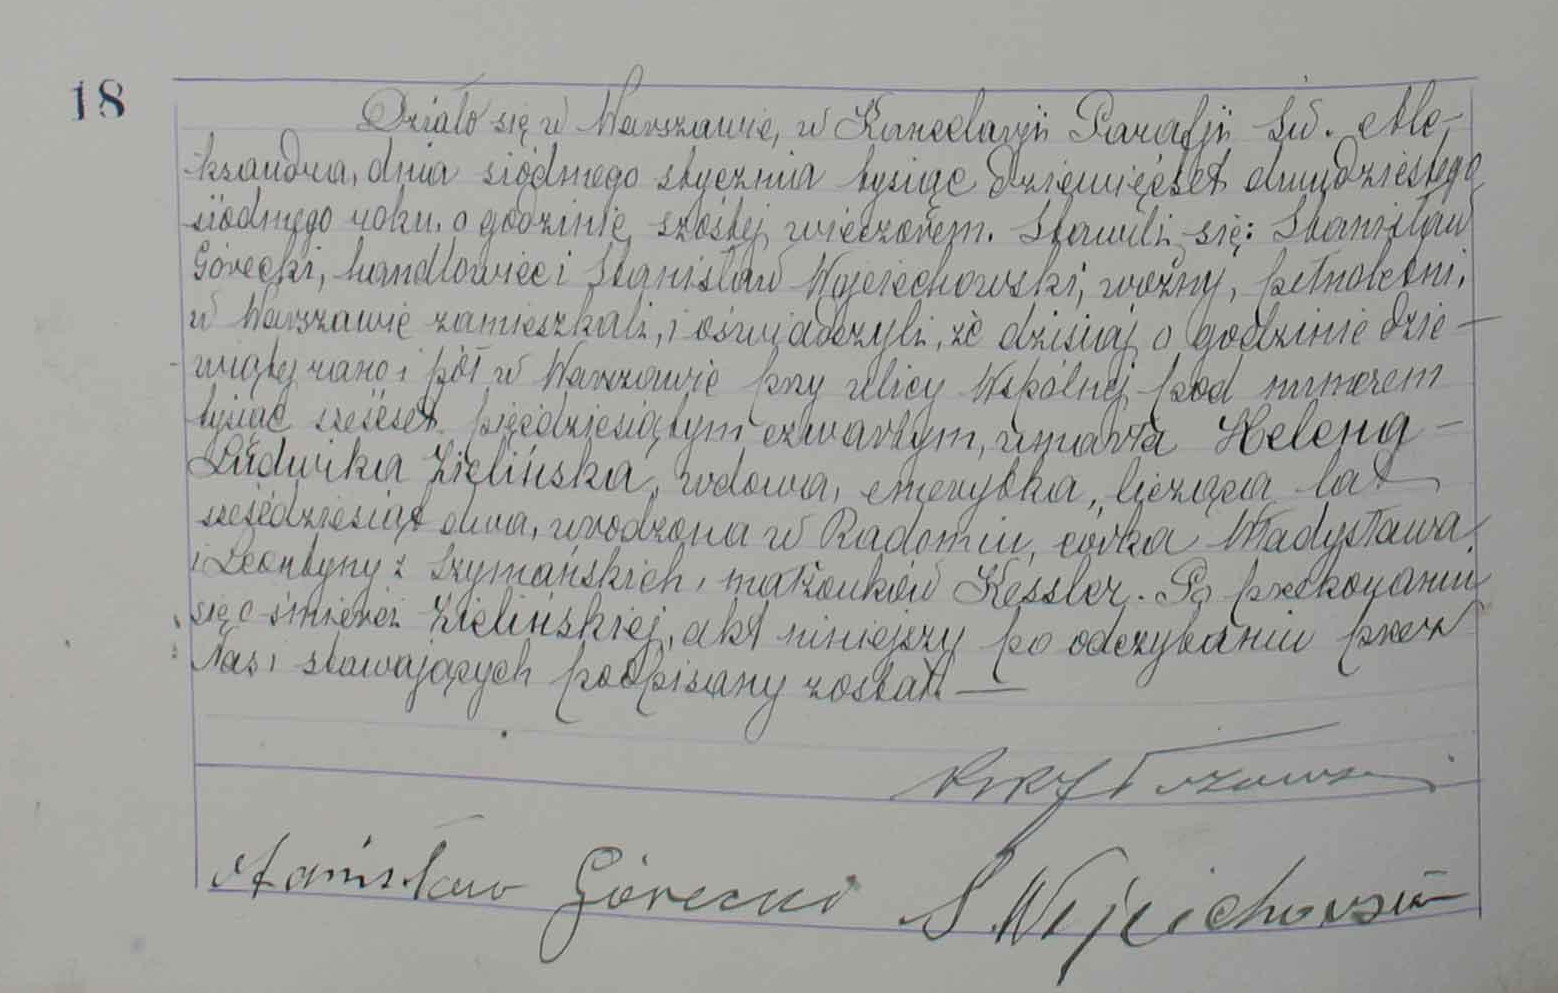 18
Działo się w Warszawie, w Kancelaryi Parafji Św. Ale-
ksandra, dnia siódmego stycznia tysiąc dziewięćset dwudziestego
siódmego roku o godzinie szóstej wieczorem. Stawili się: Stanisław
Górecki, handlowiec i Stanisław Wojciechowski, woźny, pełnoletni,
w Warszawie zamieszkali, i oświadczyli, że dzisiaj o godzinie dzie-
wiątej rano i pół w Warszawie przy ulicy Wspólnej pod numerem
tysiąc sześćset pięćdziesiątym czwartym, umarła Helena-
Ludwika Zielińska, wdowa, emerytka, licząca lat
sześćdziesiąt dwa, urodzona w Radomiu, córka Władysława
i Leontyny z Szymańskich, małżonków Kessler. Po przekonaniu
się o śmierci Zielińskiej, akt niniejszy po odczytaniu przez
Nas i stawających podpisany został. —
Stanisław Górecki S Wojciechowski